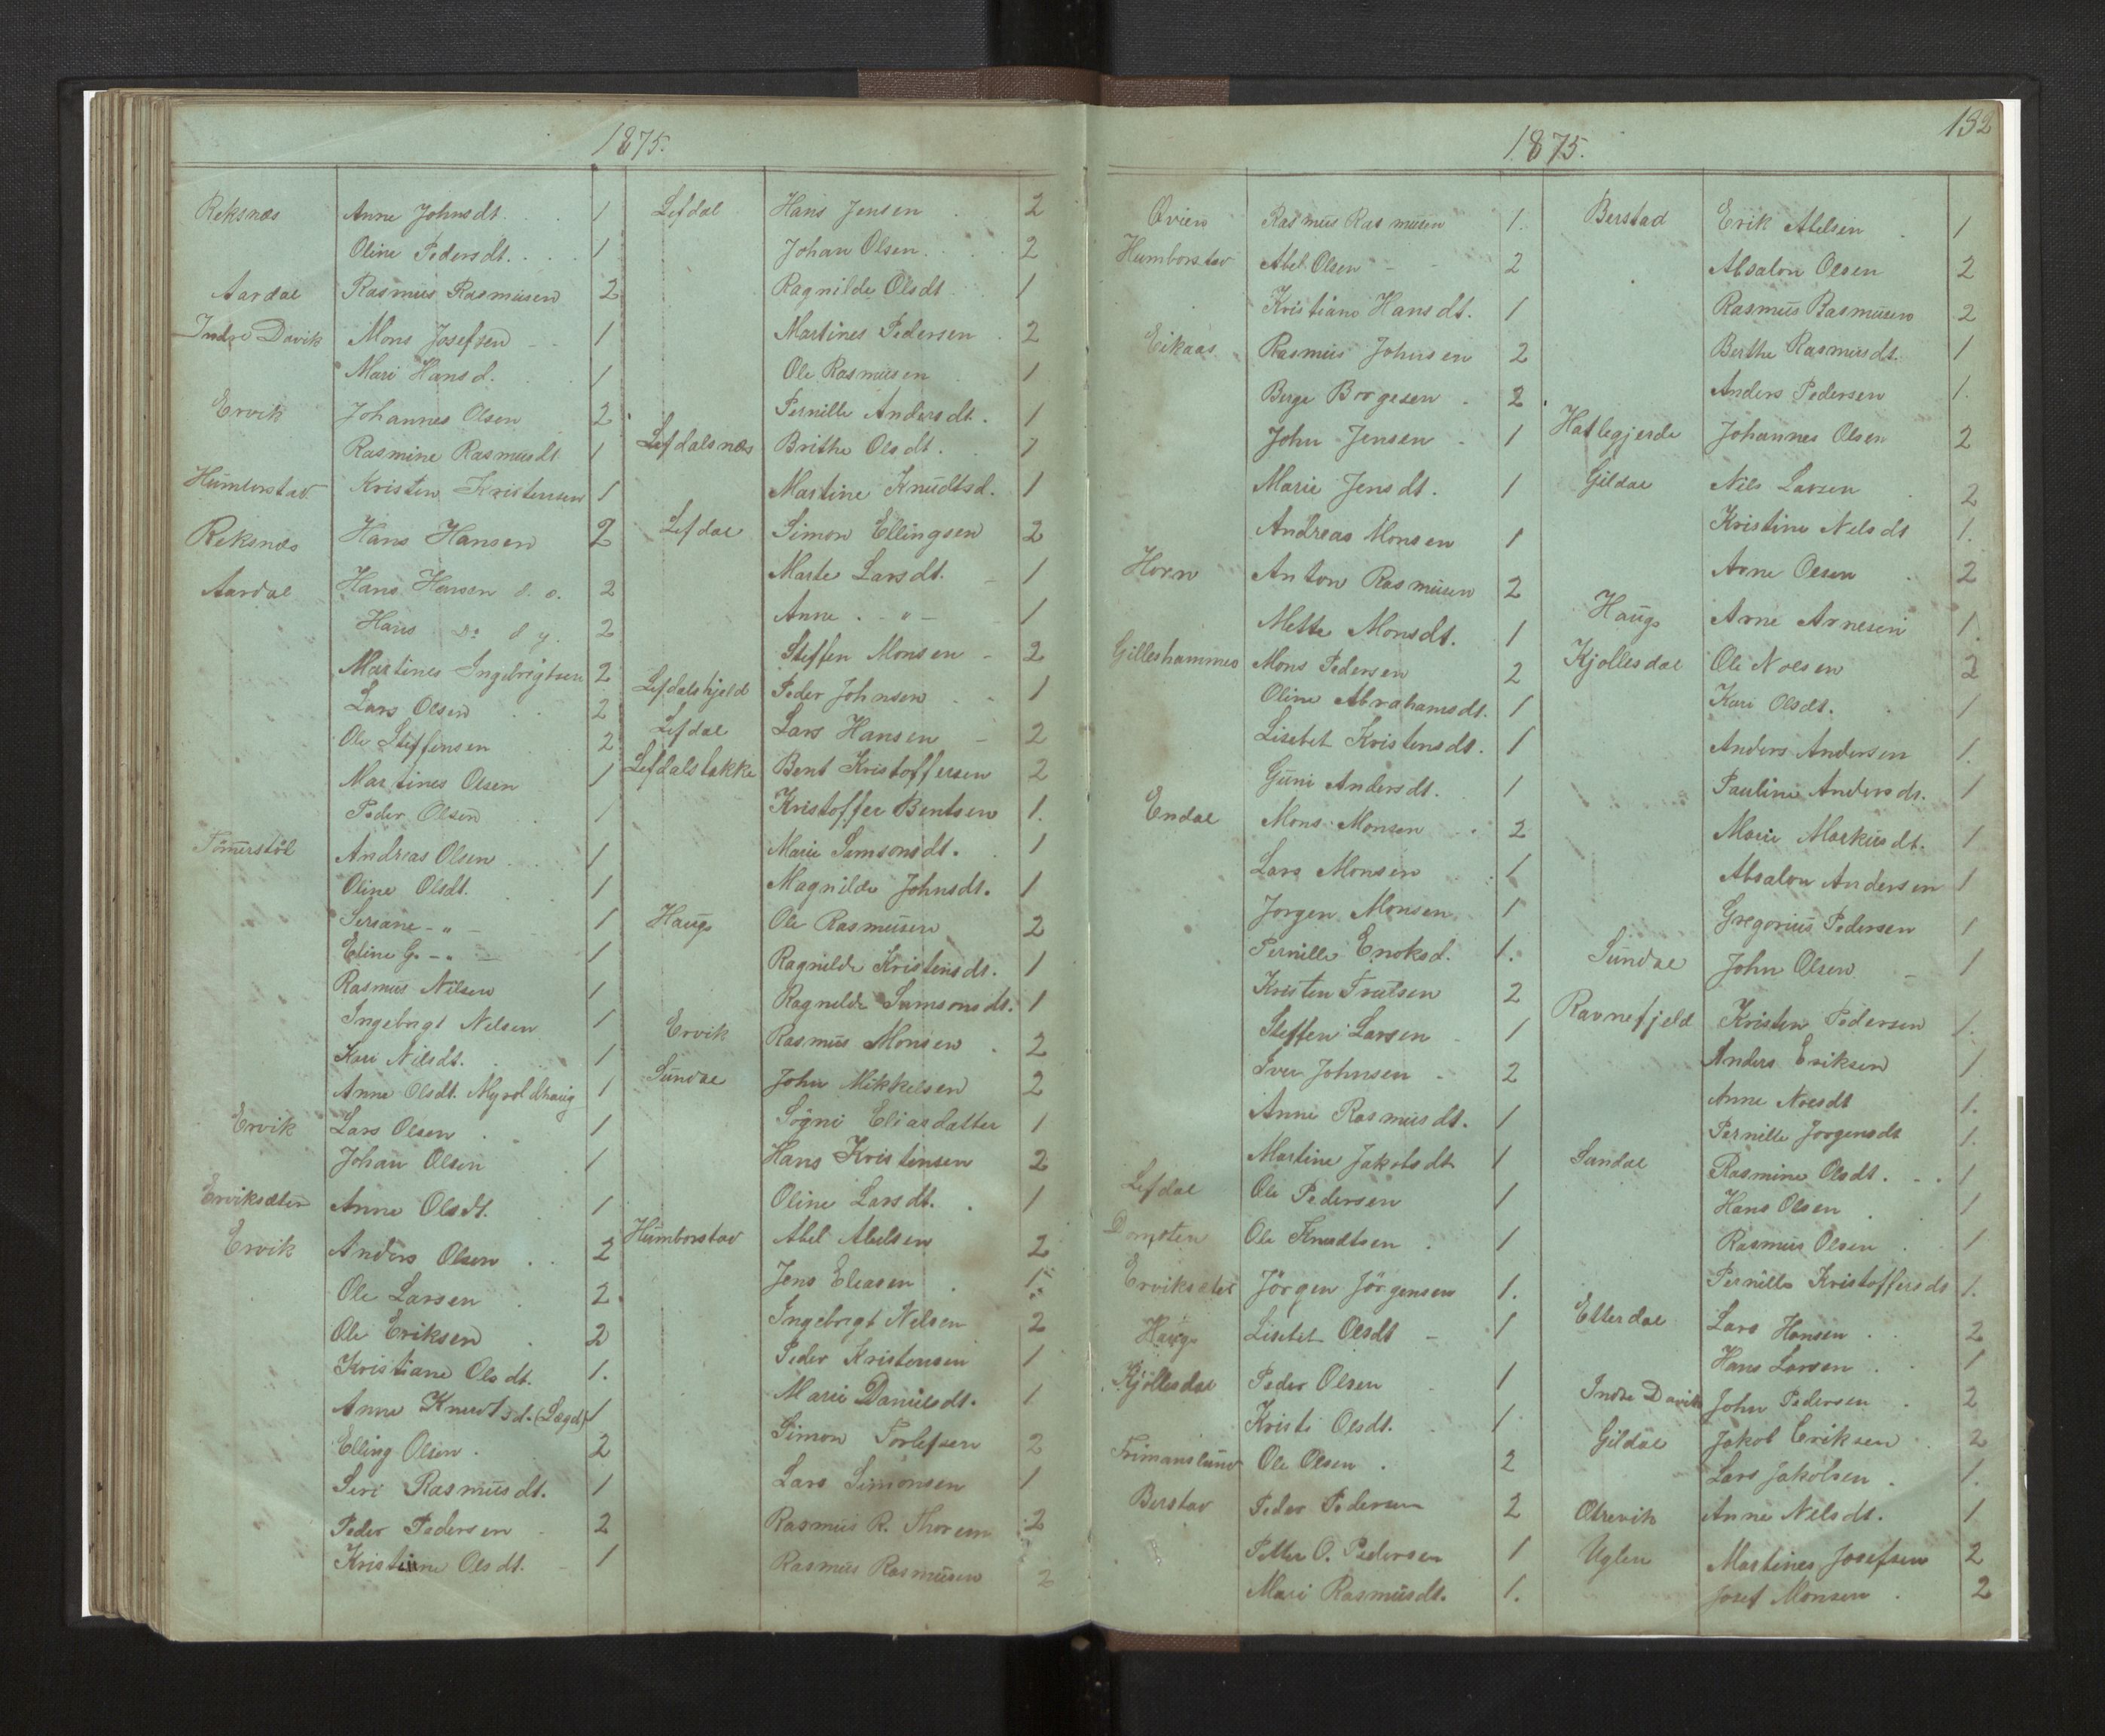 1875.
Reksnæs Anne Johnsdt. 1
Oline Pedersdt. 1
Aardal Rasmus Rasmusen 2
Indre Davik Mons Josefsen 1
Mari Hansd. 1
Ervik Johannes Olsen 2
Rasmine Rasmusdt 1
Humborstad Kristen Kristensen 1
Reksnæs Hans Hansen 2
Aardal Hans Hansen d. e. 2
Hans Do d y. 2
Martines Ingebrigtsen 2
Lars Olsen 2
Ole Steffensen 2
Martines Olsen 1
Peder Olsen 1
Andreas Olsen 1
Oline Olsdt. 1
Sersane - " - 1
Eline G. - " - 1
Rasmus Nilsen 1
Ingebrigt Nelsen 1
Kari Nilsdt. 1
Anne Olsdt. Myroldhaug 1
Ervik Lars Olsen 1
Johan Olsen 1
Erviksæter Anne Olsdt. 1
Ervik Anders Olsen 2
Ole Larsen 2
Ole Eriksen 2
Kristiane Olsdt. 1.
Anne Knudtsd. (Lægd) 1
Elling Olsen 2
Seri Rasmusdt. 1
Peder Pedersen 2
Kristine Olsdt. 1
Lefdal Hans Jensen 2
Johan Olsen 2
Ragnilde Olsdt 1
Martines Pedersen 2
Ole Rasmusen 1
Pernille Andersdt. 1
Lefdalsnæs Brithe Olsdt. 1
Martine Knudtsd. 1
Lefdal Simon Ellingsen 2
Marte Larsdt. 1
Anne - " - 1
Steffen Monsen 2
Lefdalshjeld Peder Johnsen 1
Lefdal Lars Hansen 2
Lefdalsbakke Bent Kristoffersen 2
Kristoffer Bentsen 1.
Marie Samsonsdt. 1
Magnilde Johnsdt. 1
Haugs Ole Rasmusen 2
Ragnilde Kristensdt. 1
Ragnilde Samsonsdt. 1
Ervik Rasmus Monsen 2
Sundal John Mikkelsen 2
Sögni Eliasdatter 1
Hans Kristensen 2
Oline Larsdt. 1
Humborstad Abel Abelsen 2
Jens Eleasen 1
Ingebrigt Nelsen 2
Peder Kristensen 1
Marie Danielsdt. 1
Simon Torlefsen 2
Lars Simonsen 1
Rasmus R. 2
Rasmus Rasmusen 2
132
1875.
Rasmus Rasmusen 1.
Humborstad Abel Olsen 2
Kristiane Hansdt. 1
Eikaas Rasmus Johnsen 2
Berge Borgesen 2
John Jensen 1
Marie Jensdt. 1
Andreas Monsen 1
Horn Anton Rasmusen 2
Mette Monsdt. 1
Gilleshammer Mons Pedersen 2
Oline Abrahamsdt. 1
Lisebet Kristensdt. 1
Guni Andersdt. 1
Endal Mons Monsen 2
Lars Monsen 1
Jorgen Monsen 1
Pernille Enoksd. 1.
Kristen 2
Steffen Larsen 1
Iver Johnsen 2
Anne Rasmusdt. 1
Martine Jakobsdt 1
Lefdal Ole Pedersen 1
Ole Knudtsen 1
Erviksetel Jörgen Jörgensen 1.
Haugs Lisebet Olsdt 1
Kjöllesdal Peder Olsen 1
Kristi Olsdt. 1
Frimanslund Ole Olsen 2
Berstad Peder Pedersen 2
Petter O. Pedersen 1
Mari Rasmusdt. 1.
Berstad Erik Abelsen 1
Absalon Olsen 2
Rasmus Rasmusen 2
Berthe Rasmusdt. 1
Anders Pedersen 1.
Hatlegjerde Johannes Olsen 2
Gildal Nils Larsen 2
Kristine Nelsdt 1.
Arne Olsen 2
Haugs Arne Arnesen 1.
Kjollesdal Ole Nolsen 2
Kari Olsdt. 1
Anders Andersen 1.
Pauline Andersdt. 1
Marie Markusdt. 1
Absalon Andersen 1
Gregorius Pedersen 1
Sundal John Olsen 1
Ravnefjeld Kristen Pedersen 1.
Anders Eriksen 1
Anne 1.
Pernille Jorgensdt 1.
Sundal Rasmine Olsdt. 1
Hans Olsen 1
Rasmus Olsen 1
Pernille Kristoffersdt 1.
Etterdal Lars Hansen 2
Hans Larsen 1
Indre Davik John Pedersen 2
Gildal Jakob Eriksen 2
Lars Jakobsen 1.
Otrevik Anne Nelsdt. 1
Uglen Martines Josefsen 2
Josef Monsen 2